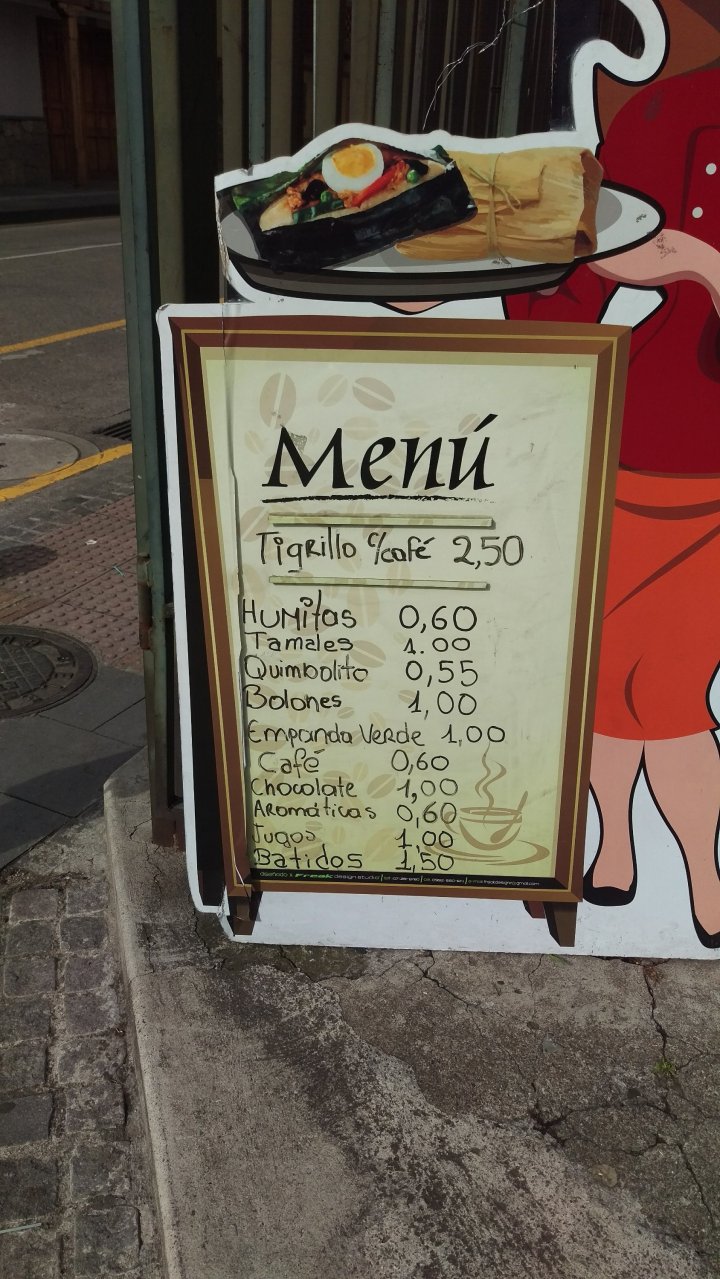 Menú
Tigrillo c/café 2,50
Humitas 0,60
Tamales 1.00
Quimbolito 0,55
Bolones 1,00
Empanda Verde 1,00
Café 0,60
Chocolate 1,00
Aromáticas 0,60
Jugos 1,00
Batidos 1,50
diseñado x Freak design studio